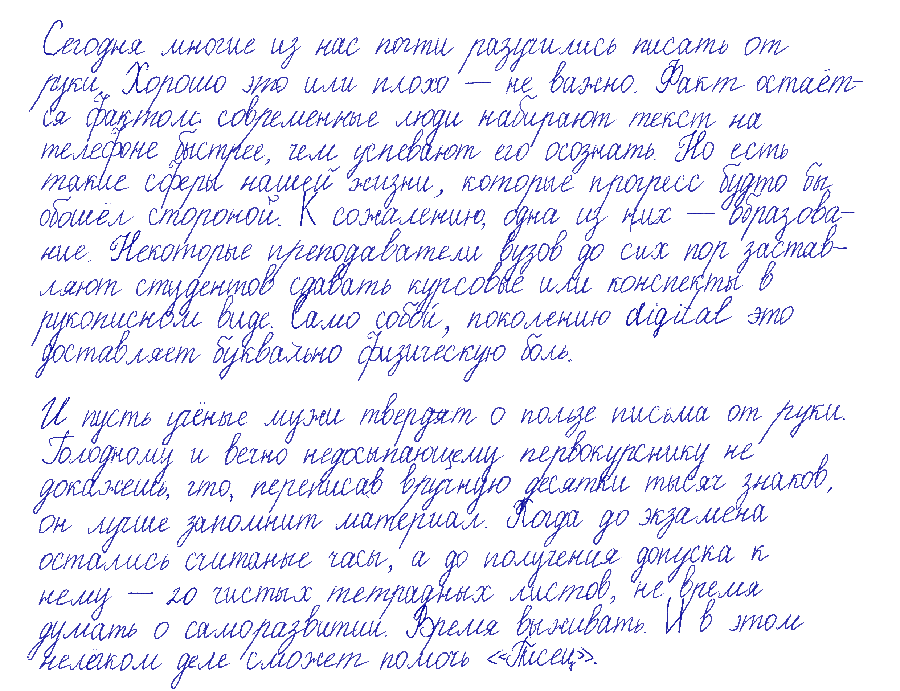 Сегодня многие из нас почти разучились писать от
руки. Хорошо это или плохо — не важно. Факт остаёт-
ся фактом: современные люди набирают текст на
телефоне быстрее, чем успевают его осознать. Но есть
такие сферы нашей жизни, которые прогресс будто бы
обошёл стороной. К сожалению, одна из них — образова-
ние. Некоторые преподаватели вузов до сих пор застав-
ляют студентов сдавать курсовые или конспекты в
рукописном виде. Само собой, поколению digital это
доставляет буквально физическую боль.
И пусть учёные мужи твердят о пользе письма от руки.
Голодному и вечно недосыпающему первокурснику не
докажешь, что, переписав вручную десятки тысяч знаков,
он лучше запомнит материал. Когда до экзамена
остались считаные часы, а до получения допуска к
нему — 20 чистых тетрадных листов, не время
думать о саморазвитии. Время выживать. И в этом
нелёгком деле сможет помочь «Писец».